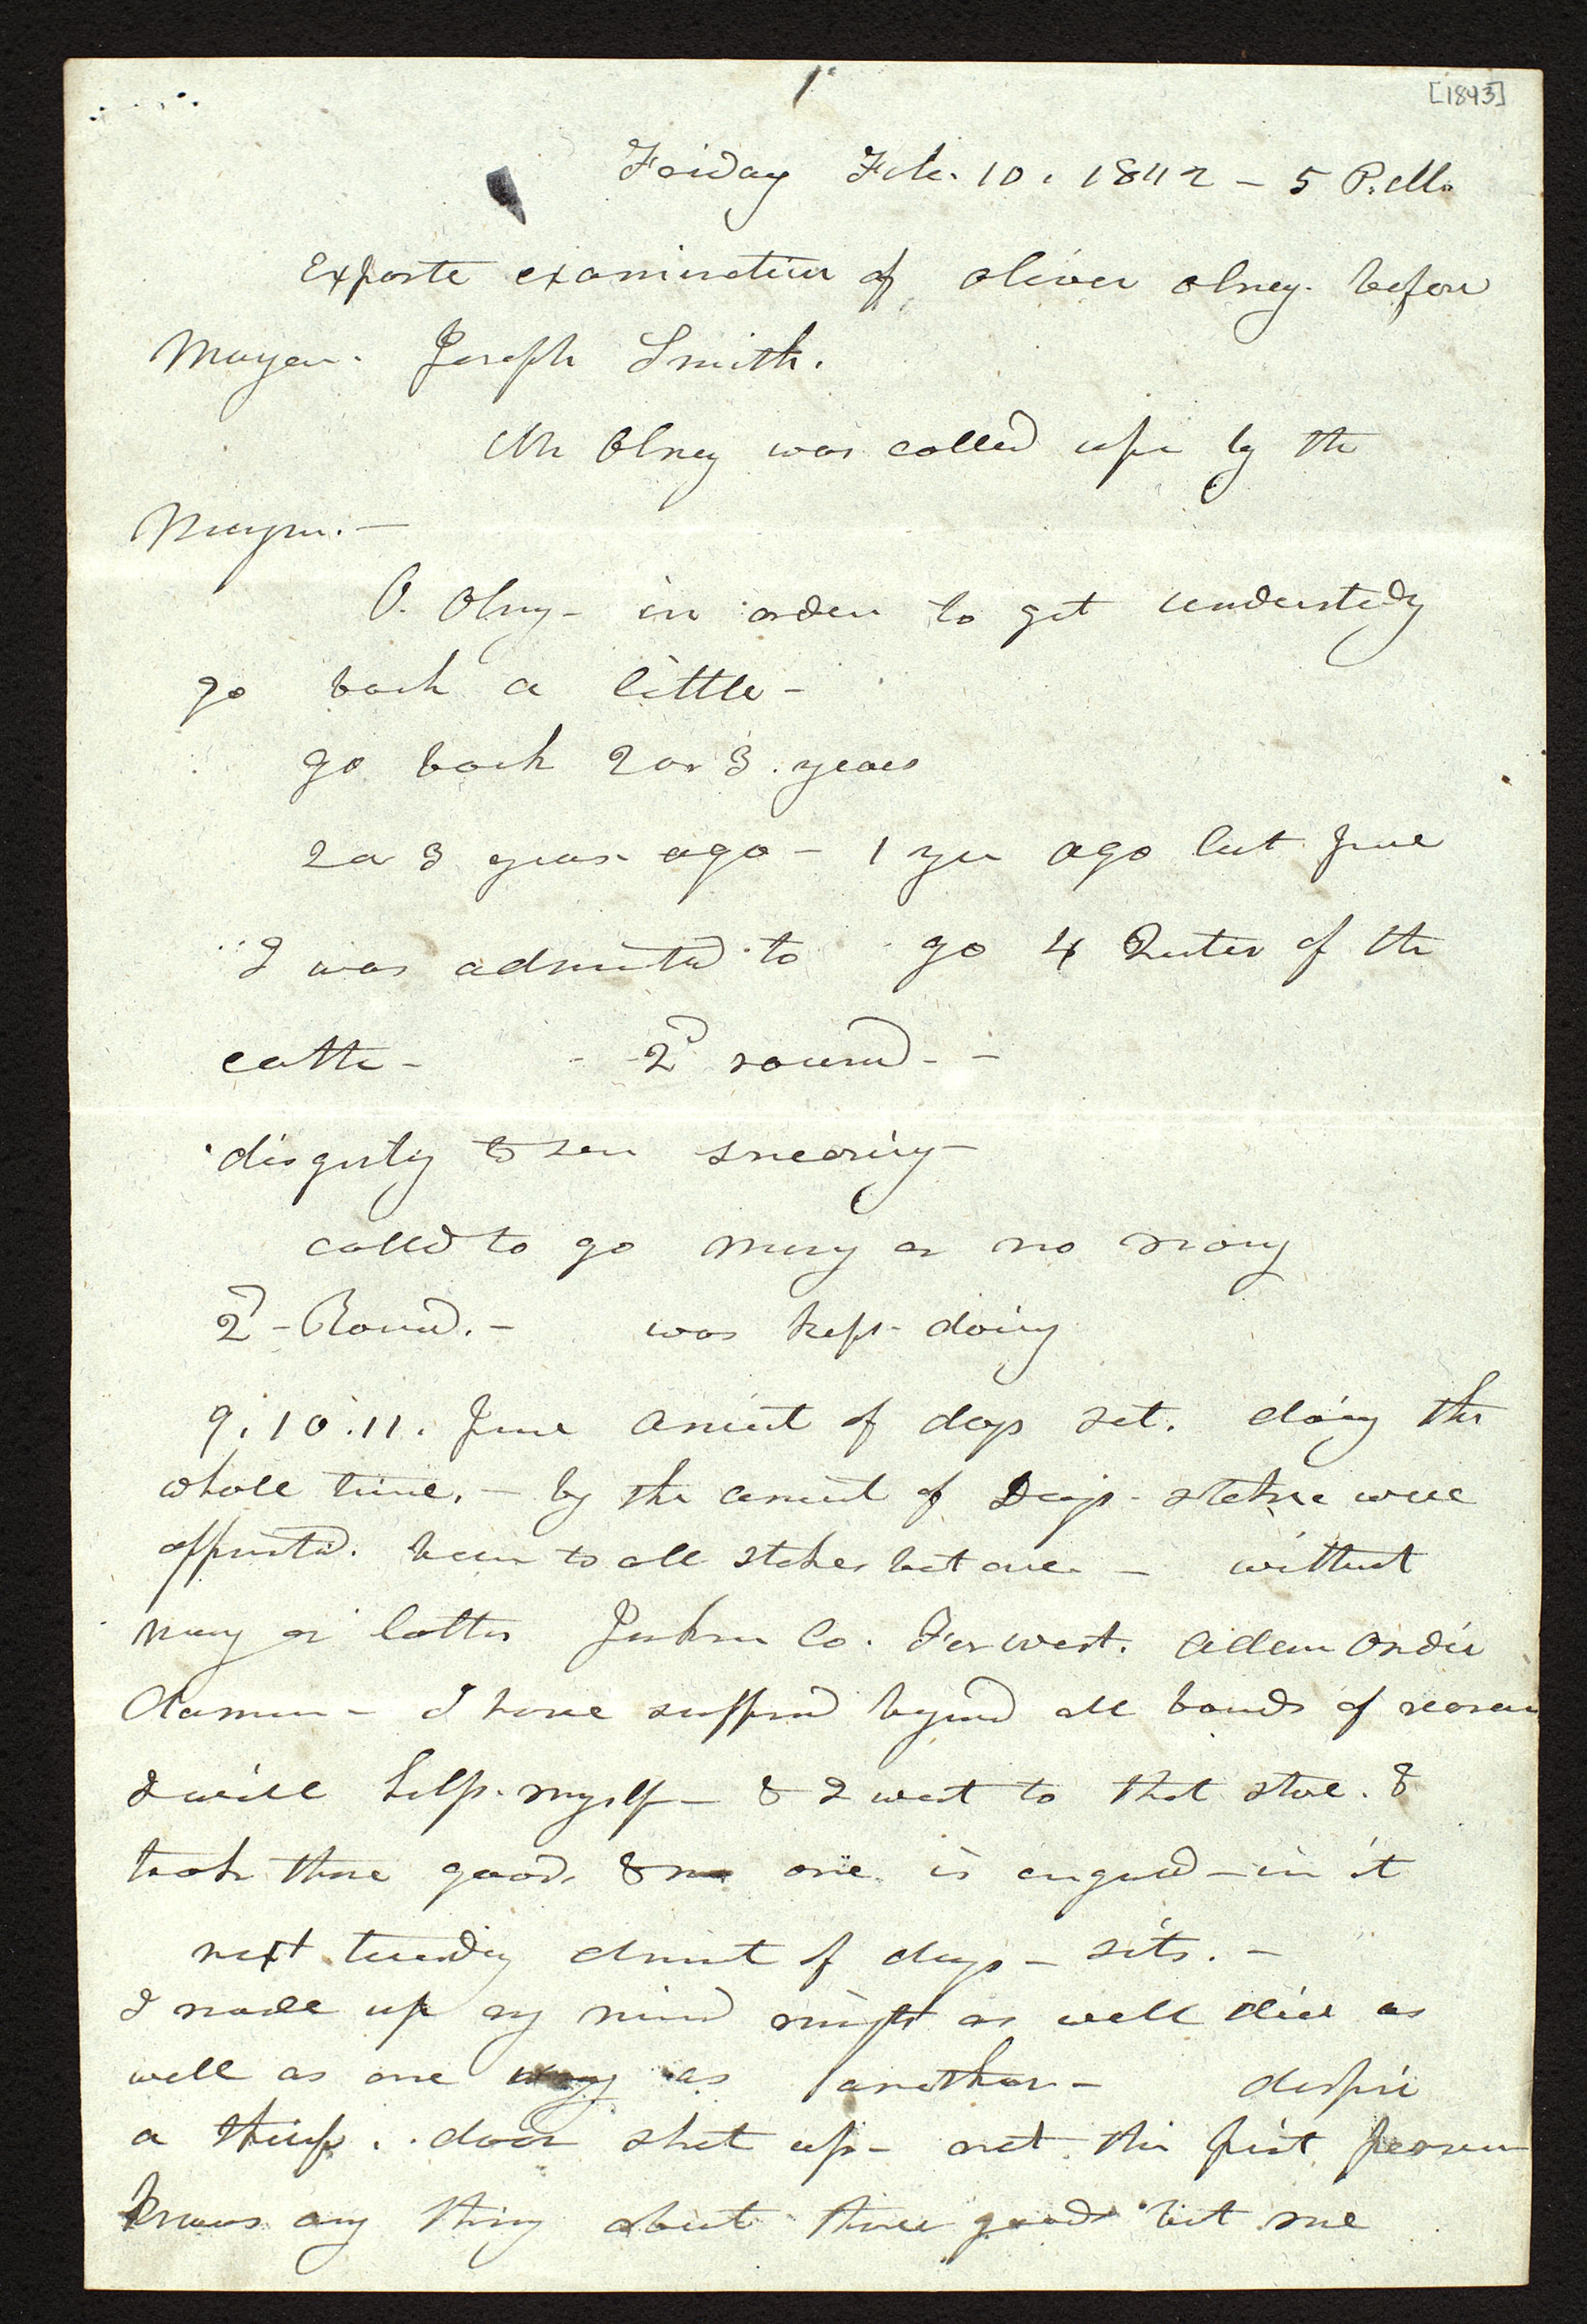 1
[1843]
Friday Feb. 10. 1842 – 5 P.M.
Exparte examination of Oliver Olney. before
Mayor. Joseph Smith.
Mr Olney was called up by the
Mayor. –
O. Olny – in order to get understadg
go back a little –
go back 2 or 3. years
2 or 3 years ago – 1 yer ago last June
I was admitted to go 4 Quter of the
earth – 2d round – –
disgusty to see sneering –
called to go mony or no mony
2d – Round. – was kept doing
9. 10. 11. June Anciet of days set. doing the
whole time. – by the Ancient of Days – stakes were
appointd. been to all stakes but one – without
mony or letter Jackson Co. Far west. Adam Ondi
Ahamon – I have suffered beyond all bounds of reason
I will help myself – & I went to that store. &
took those goods & no one is engaged – in it
next tuesday Ancient of days – sits. –
I made up my mind might as well die as
well as one way as another – despise
a thief. . door shut up – not the first person
knows any thing about those goods but me